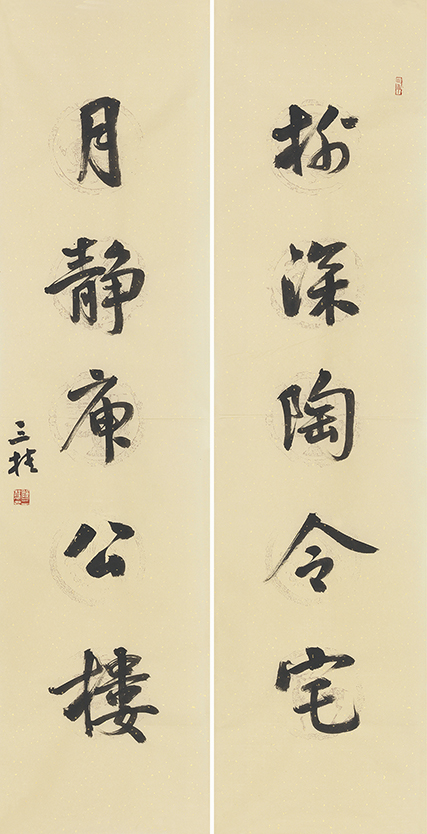 柳深陶令宅
月静庾公楼
三桂